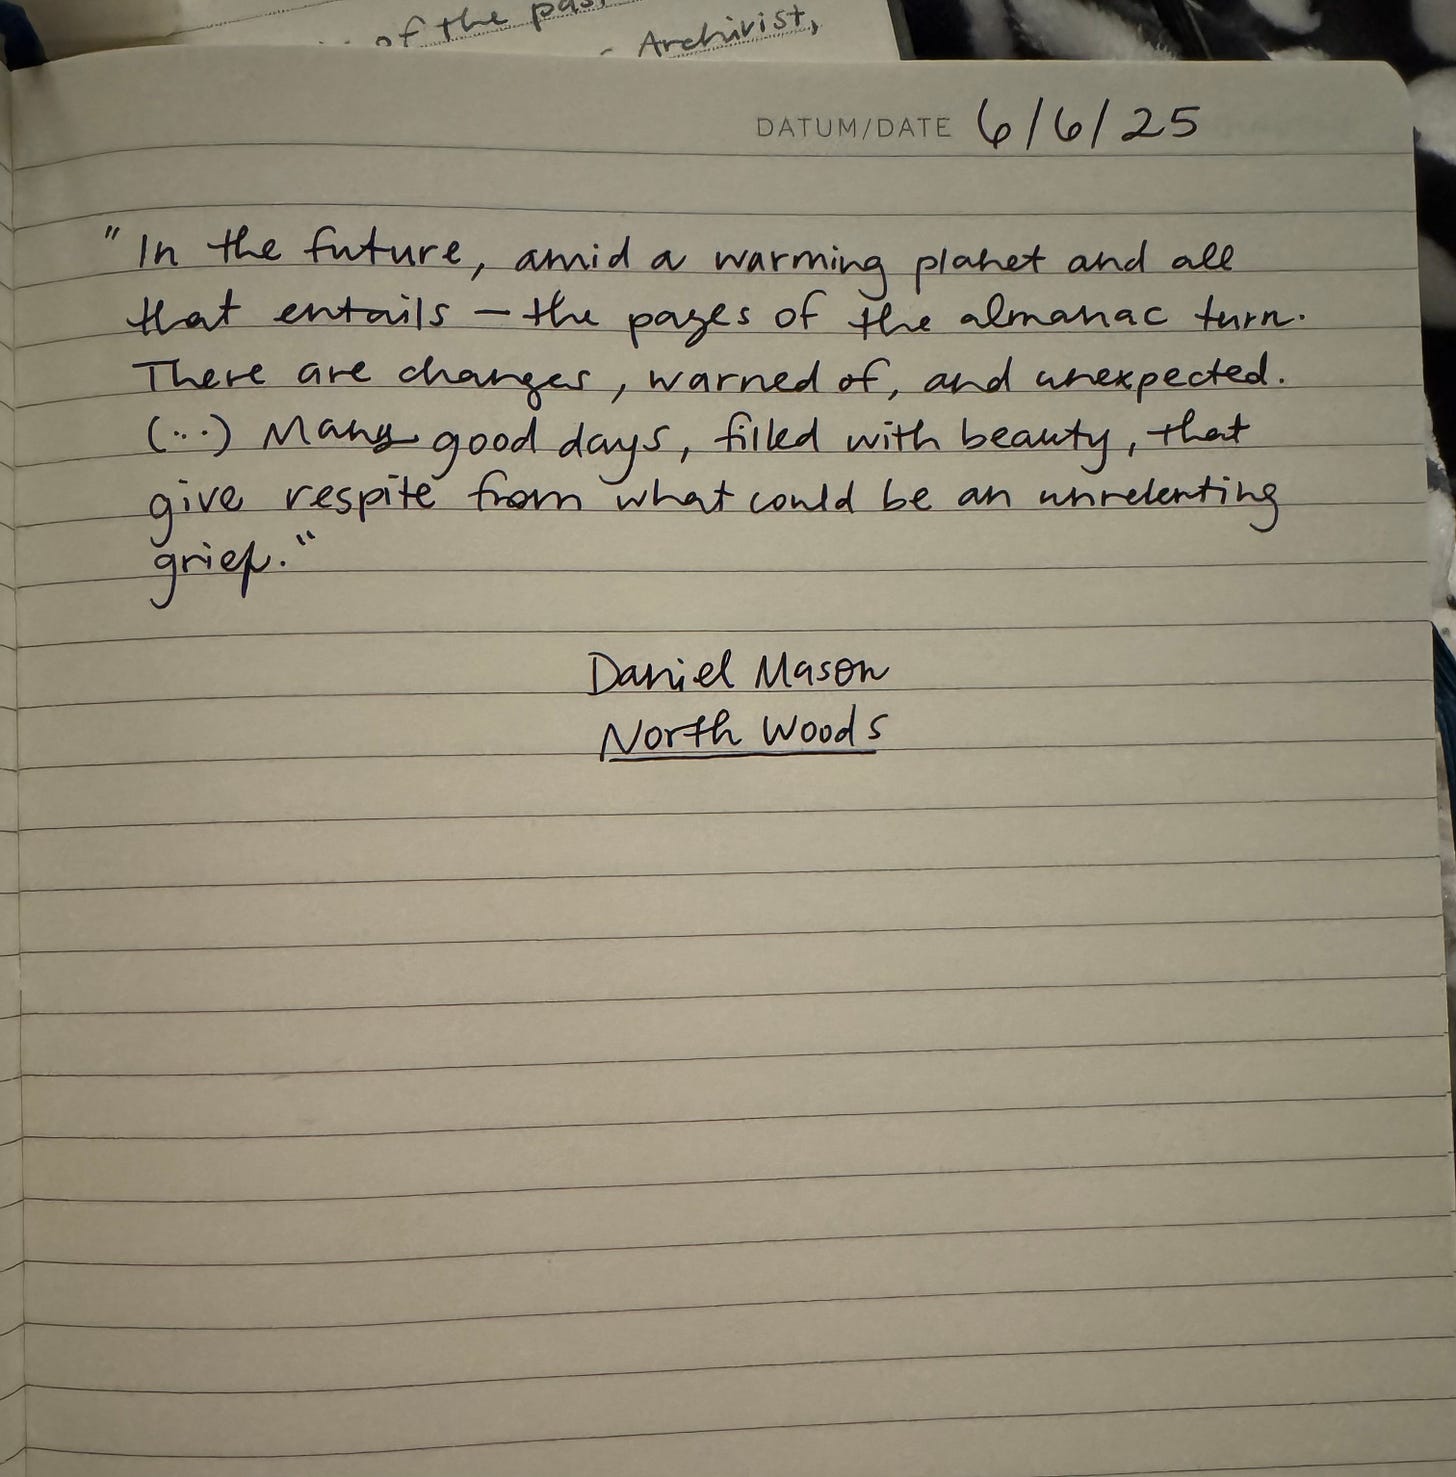 of the past
- Archivist,
DATUM/DATE 6/6/25
"In the future, amid a warming planet and all
that entails — the pages of the almanac turn.
There are changes, warned of, and unexpected.
(...) Many good days, filled with beauty, that
give respite from what could be an unrelenting
grief."
Daniel Mason
North Woods